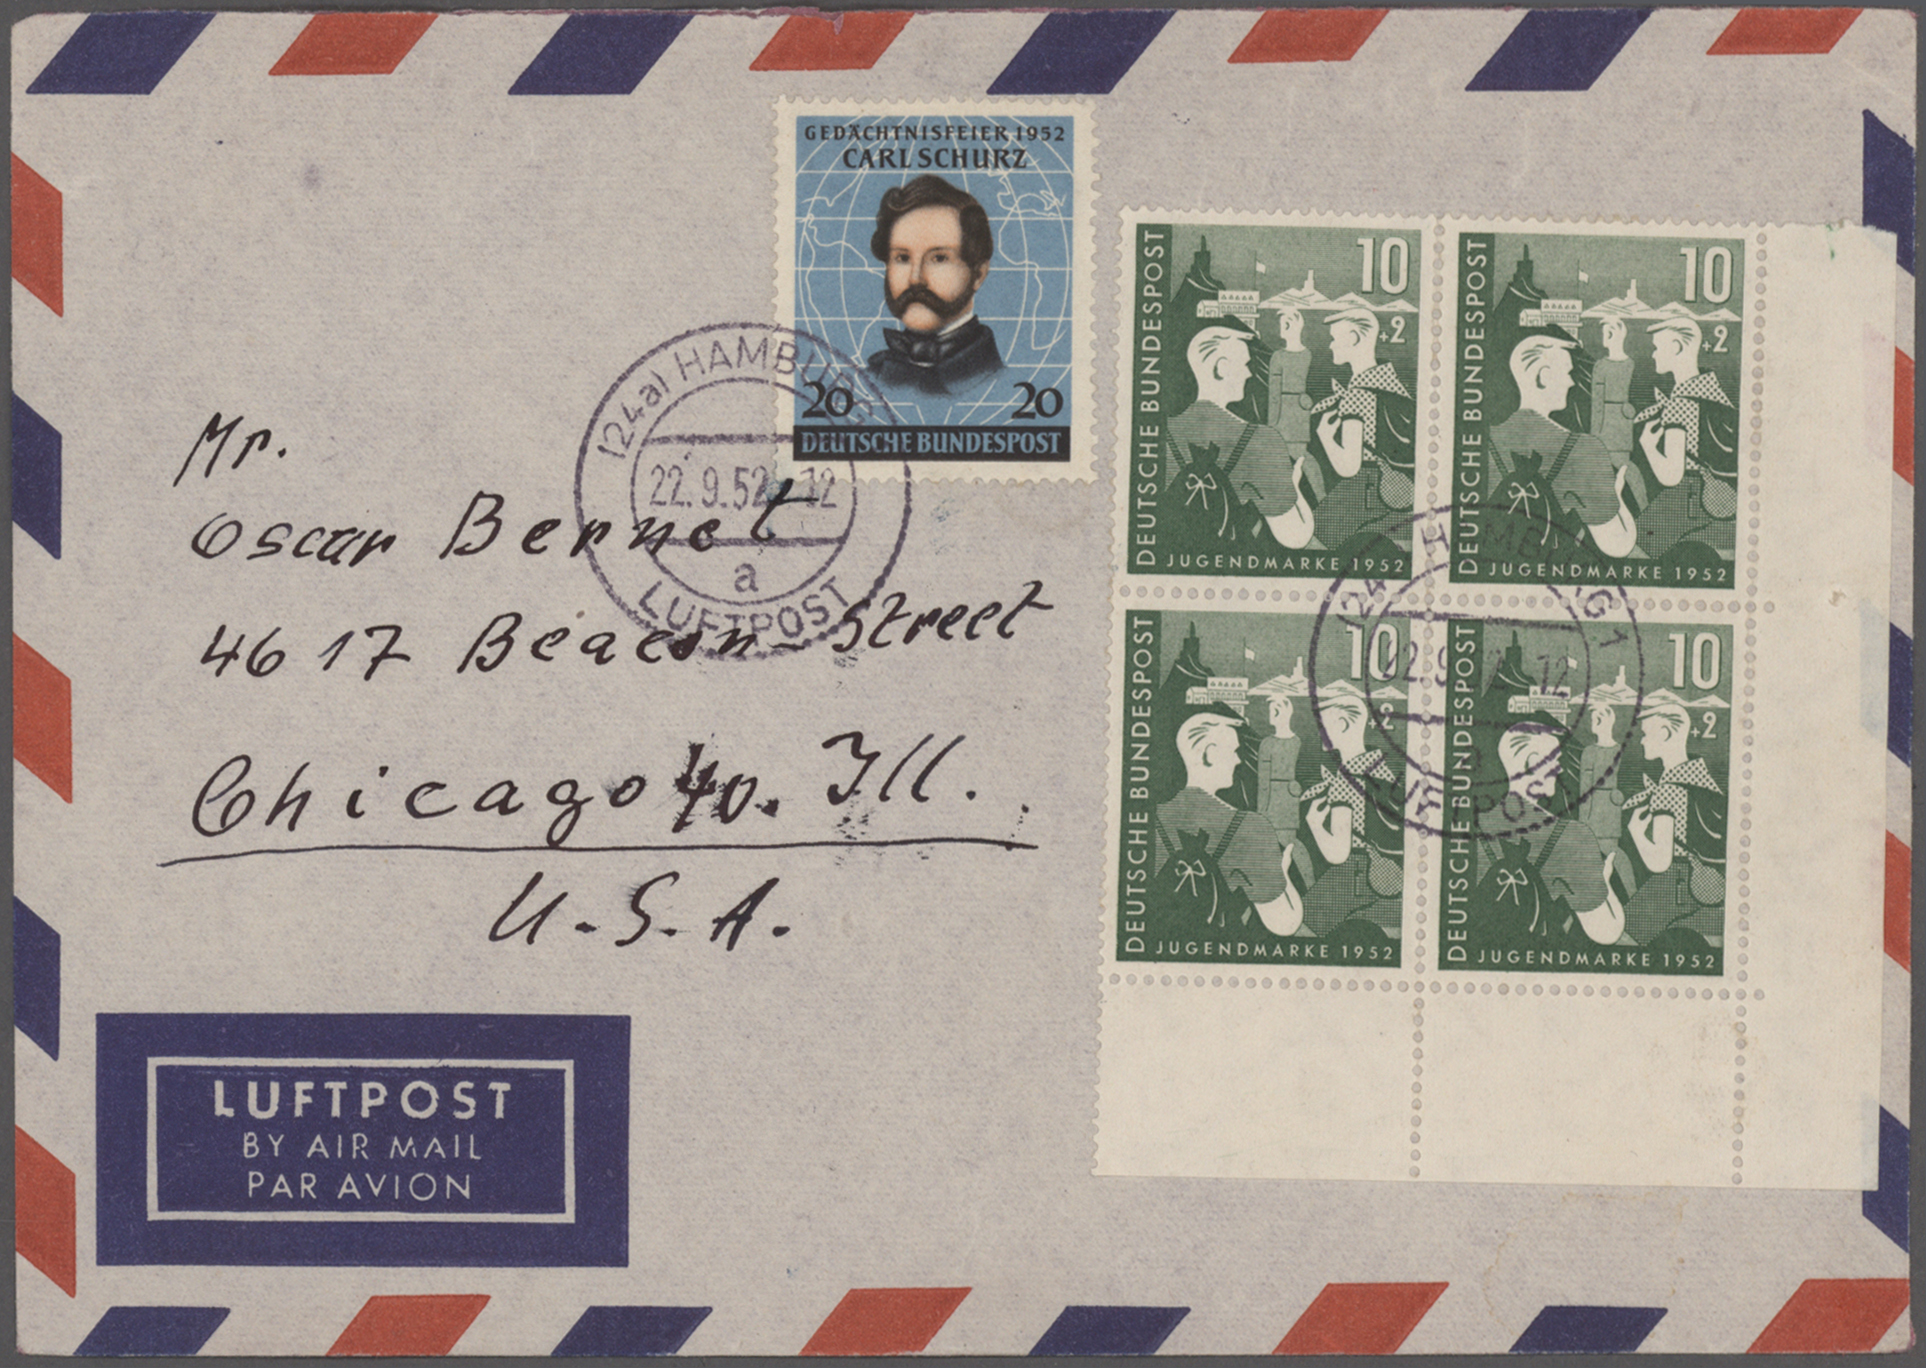 GEDÄCHTNISFEIER 1952
CARL SCHURZ
20 20
DEUTSCHE BUNDESPOST
(24a) HAMBURG
22.9.52 -12
a
LUFTPOST
DEUTSCHE BUNDESPOST
10
+2
JUGENDMARKE 1952
DEUTSCHE BUNDESPOST
10
+2
JUGENDMARKE 1952
DEUTSCHE BUNDESPOST
10
+2
JUGENDMARKE 1952
DEUTSCHE BUNDESPOST
10
+2
JUGENDMARKE 1952
(24a) HAMBURG 1
22.9.52 -12
LUFTPOST
Mr.
Oscar Bernet
4617 Beacon Street
Chicago 40. Ill.
U.S.A.
LUFTPOST
BY AIR MAIL
PAR AVION